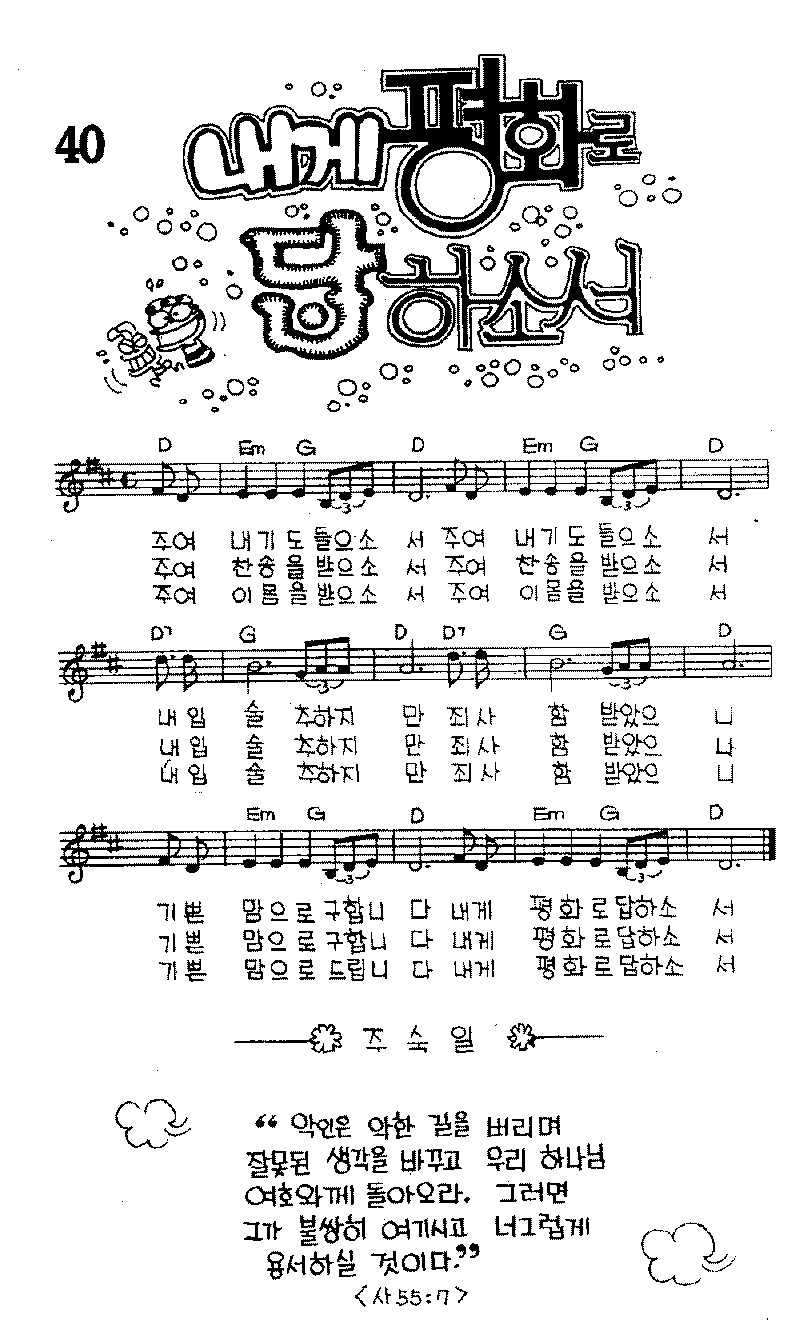 40
내게 평화로
답하소서
D Em G D Em G D
주여 내기도들으소 서 주여 내기도들으소 서
주여 찬송을받으소 서 주여 찬송을받으소 서
주여 이몸을받으소 서 주여 이몸을받으소 서
D7 G D D7 G D
내입 술 추하지 만 죄사 함 받았으 니
내입 술 추하지 만 죄사 함 받았으 니
내입 술 추하지 만 죄사 함 받았으 니
Em G D Em G D
기쁜 맘으로구합니 다 내게 평화로답하소 서
기쁜 맘으로구합니 다 내게 평화로답하소 서
기쁜 맘으로드립니 다 내게 평화로답하소 서
조 숙 일
“ 악인은 악한 길을 버리며
잘못된 생각을 바꾸고 우리 하나님
여호와께 돌아오라. 그러면
그가 불쌍히 여기시고 너그럽게
용서하실 것이다.”
<사55:7>